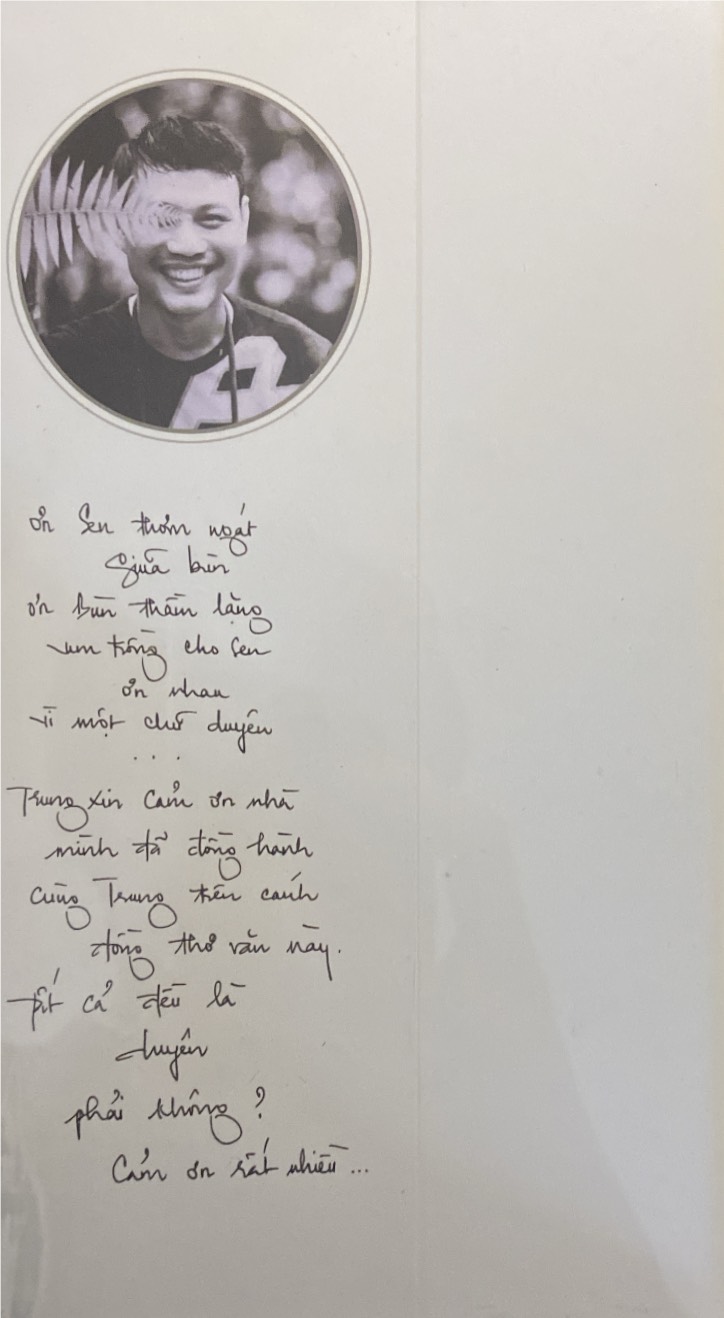 ơn Sen thơm ngát
giữa bùn
ơn Bùn thầm lặng
vun trồng cho sen
ơn nhau
vì một chữ duyên
...
Trung xin cảm ơn nhà
mình đã đồng hành
cùng Trung trên cánh
đồng thơ văn này.
tất cả đều là
duyên
phải không?
Cảm ơn rất nhiều...